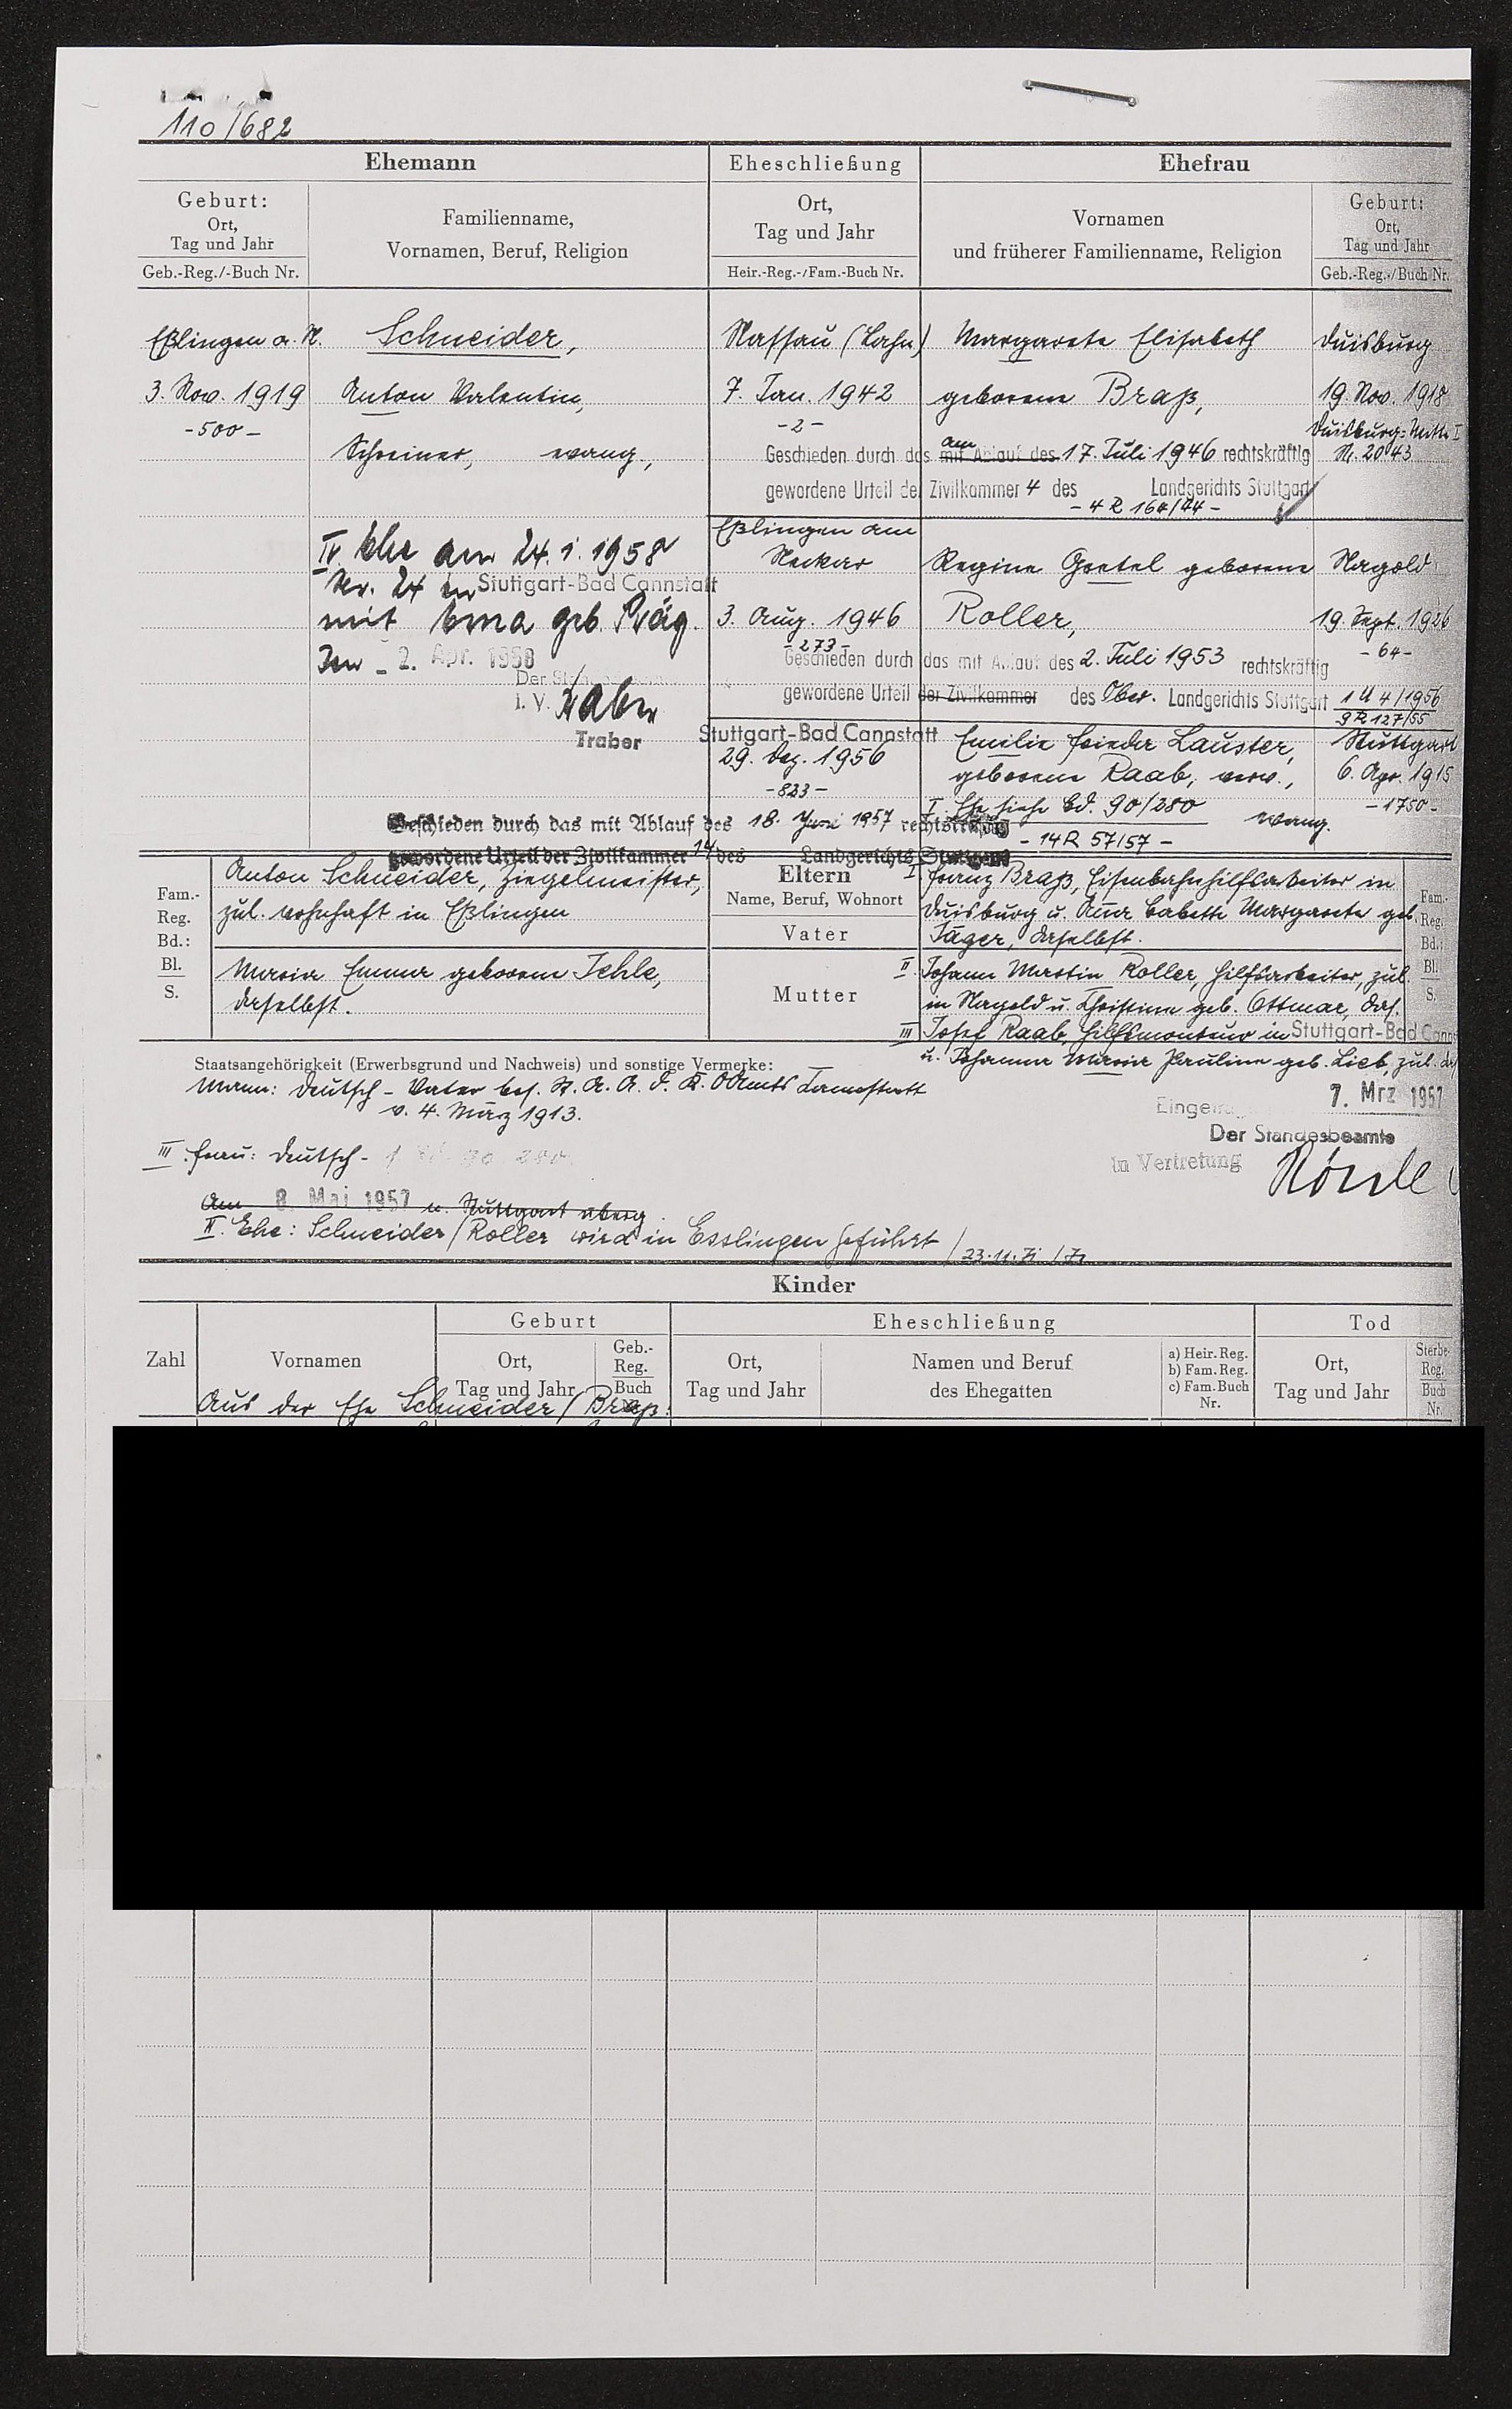 110/682
Ehemann
Eheschließung
Ehefrau
Geburt:
Ort,
Tag und Jahr
Geb.-Reg./-Buch Nr.
Familienname,
Vornamen, Beruf, Religion
Ort,
Tag und Jahr
Heir.-Reg.-/Fam.-Buch Nr.
Vornamen
und früherer Familienname, Religion
Geburt:
Ort,
Tag und Jahr
Geb.-Reg.-/Buch Nr.
Eßlingen a. N.
3. Nov. 1919
-500-
Schneider,
Anton Valentin,
Schreiner, evang.,
Nassau (Lahn)
7. Jan. 1942
-2-
Margarete Elisabeth
geborene Braß,
Duisburg
19. Nov. 1918
Duisburg-Mitte I
Nr. 2043
am
Geschieden durch das mit Ablauf des 17. Juli 1946 rechtskräftig
gewordene Urteil der Zivilkammer 4 des Landgerichts Stuttgart
- 4 R 164/44 -
IV. Ehe am 24.1.1958
Nr. 24 in Stuttgart-Bad Cannstatt
mit Erna geb. Präg.
Den - 2. Apr. 1958
Der Standesbeamte
I. V.
Traber
Eßlingen am
Neckar
3. Aug. 1946
-273-
Regine Gretel geborene
Roller,
Nagold
19. Sept. 1926
-64-
Geschieden durch das mit Ablauf des 2. Juli 1953 rechtskräftig
gewordene Urteil der Zivilkammer des Ober. Landgerichts Stuttgart
1 U 4/1956
9 R 127/55
Stuttgart-Bad Cannstatt
29. Dez. 1956
-823-
Emilie Frieda Lauster,
geborene Raab, verw.,
I. Ehe siehe Bd. 90/280 evang.
Stuttgart
6. Apr. 1915
-1750-
Geschieden durch das mit Ablauf des 18. Juni 1957 rechtskräftig
- 14 R 57/57 -
gewordene Urteil der Zivilkammer 14 des Landgerichts Stuttgart
Fam.-
Reg.
Bd.:
Bl.
S.
Anton Schneider, Ziegelmeister,
zul. wohnhaft in Eßlingen
Maria Emma geborene Jehle,
daselbst.
Eltern
Name, Beruf, Wohnort
Vater
Mutter
I. Franz Braß, Eisenbahnhilfsarbeiter in
Duisburg u. Anna Babette Margarete geb.
Jäger, daselbst.
II. Johann Martin Roller, Hilfsarbeiter, zul.
in Nagold u. Christine geb. Ottmar, das.
III Josef Raab, Hilfsmonteur in Stuttgart-Bad Cann
u. Johanna Maria Pauline geb. Lieb, zul. das
Fam.-
Reg.
Bd.:
Bl.
S.
Staatsangehörigkeit (Erwerbsgrund und Nachweis) und sonstige Vermerke:
Mann: Deutsch - Vater bes. St. A. A. d. K. OAmts Cannstatt
v. 4. März 1913.
III. Frau: Deutsch -
Eingetragen 7. Mrz 1957
Der Standesbeamte
in Vertretung
Am 8. Mai 1957 n. Stuttgart überg.
II. Ehe: Schneider/Roller wird in Esslingen geführt / 23.11.71
Kinder
Zahl
Vornamen
Geburt
Ort,
Tag und Jahr
Geb.-
Reg.
Buch
Eheschließung
Ort,
Tag und Jahr
Namen und Beruf
des Ehegatten
a) Heir. Reg.
b) Fam. Reg.
c) Fam. Buch
Nr.
Tod
Ort,
Tag und Jahr
Sterbe-
Reg.
Buch
Nr.
Aus der Ehe Schneider/Braß: